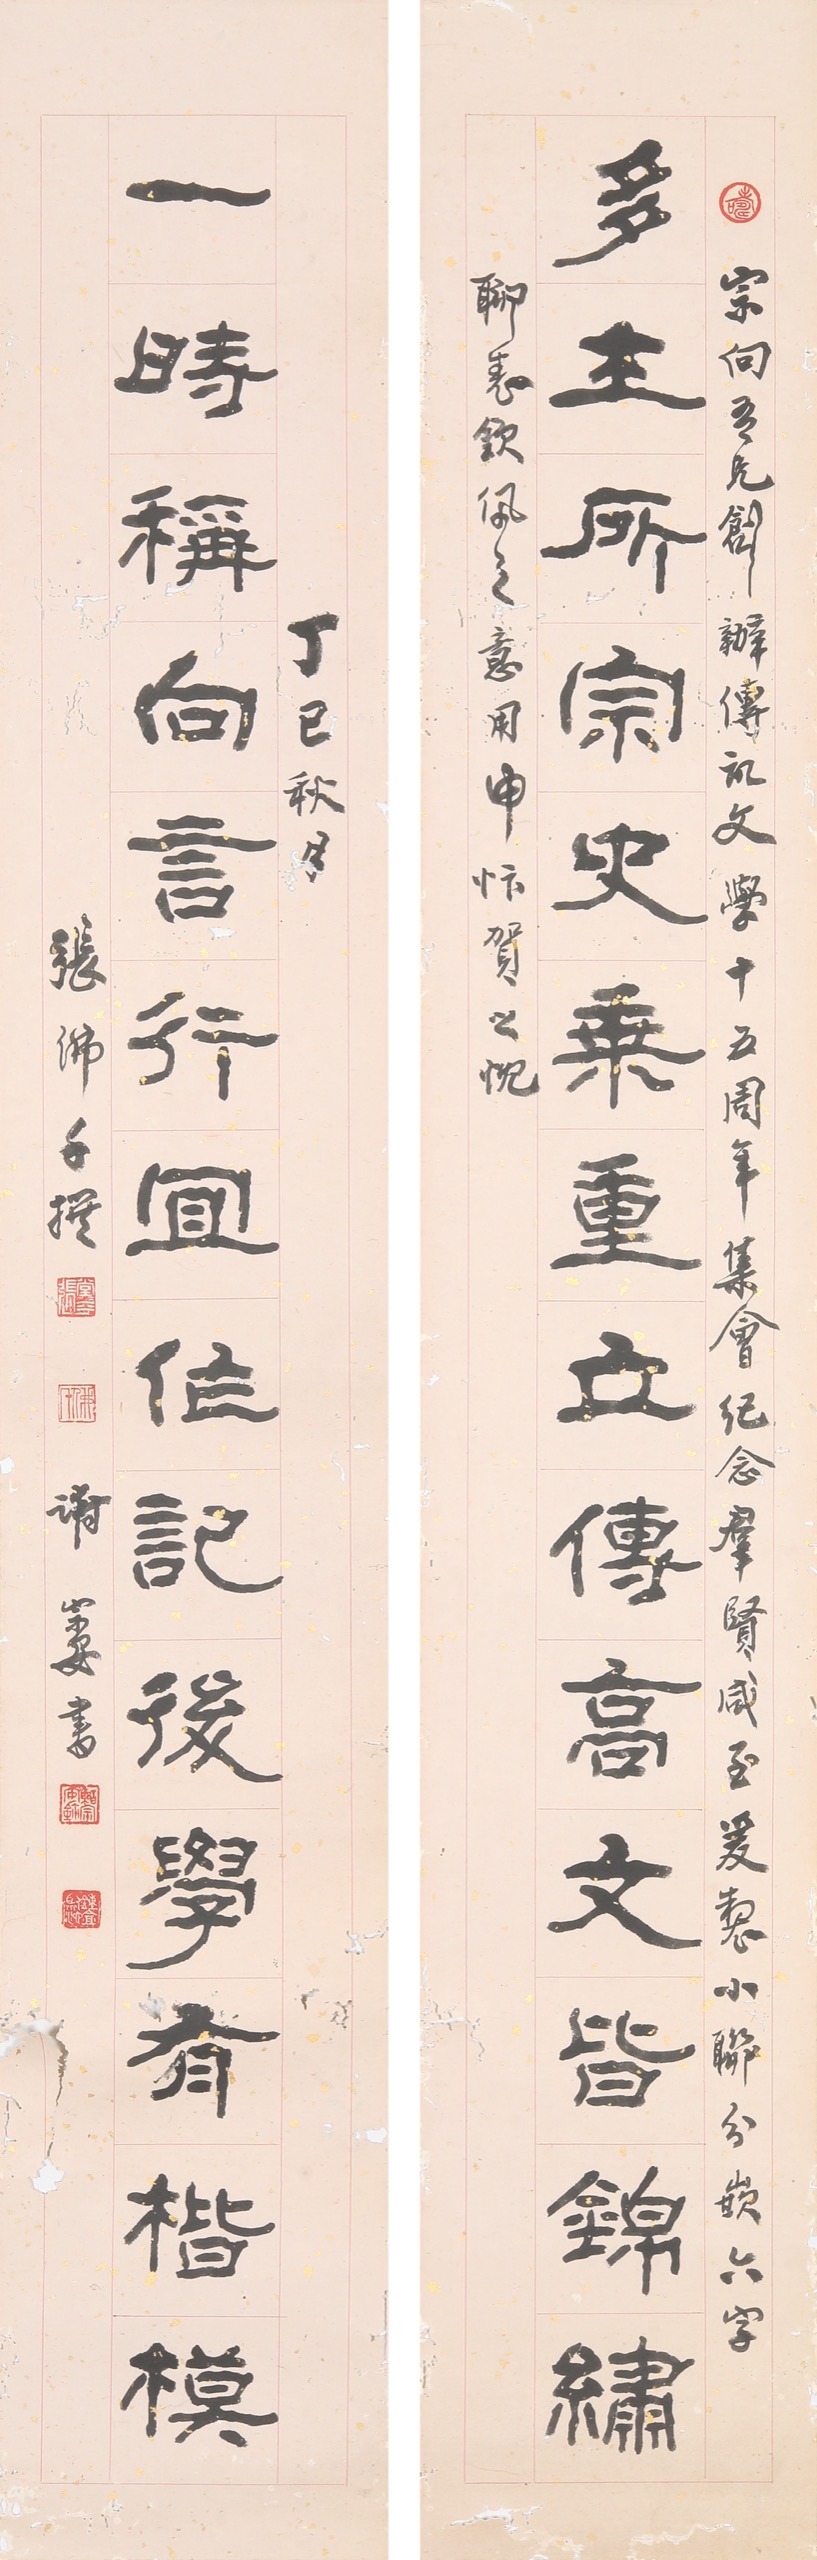 宗向吾兄創辦傳記文學十五周年集會紀念羣賢咸至爰製小聯分嵌六字
多主所宗史乘重立傳高文皆錦繡
聊表欽佩之意用申忭賀之忱
丁巳秋月
一時稱向言行宜作記後學有楷模
張佛千撰 謝宗安書